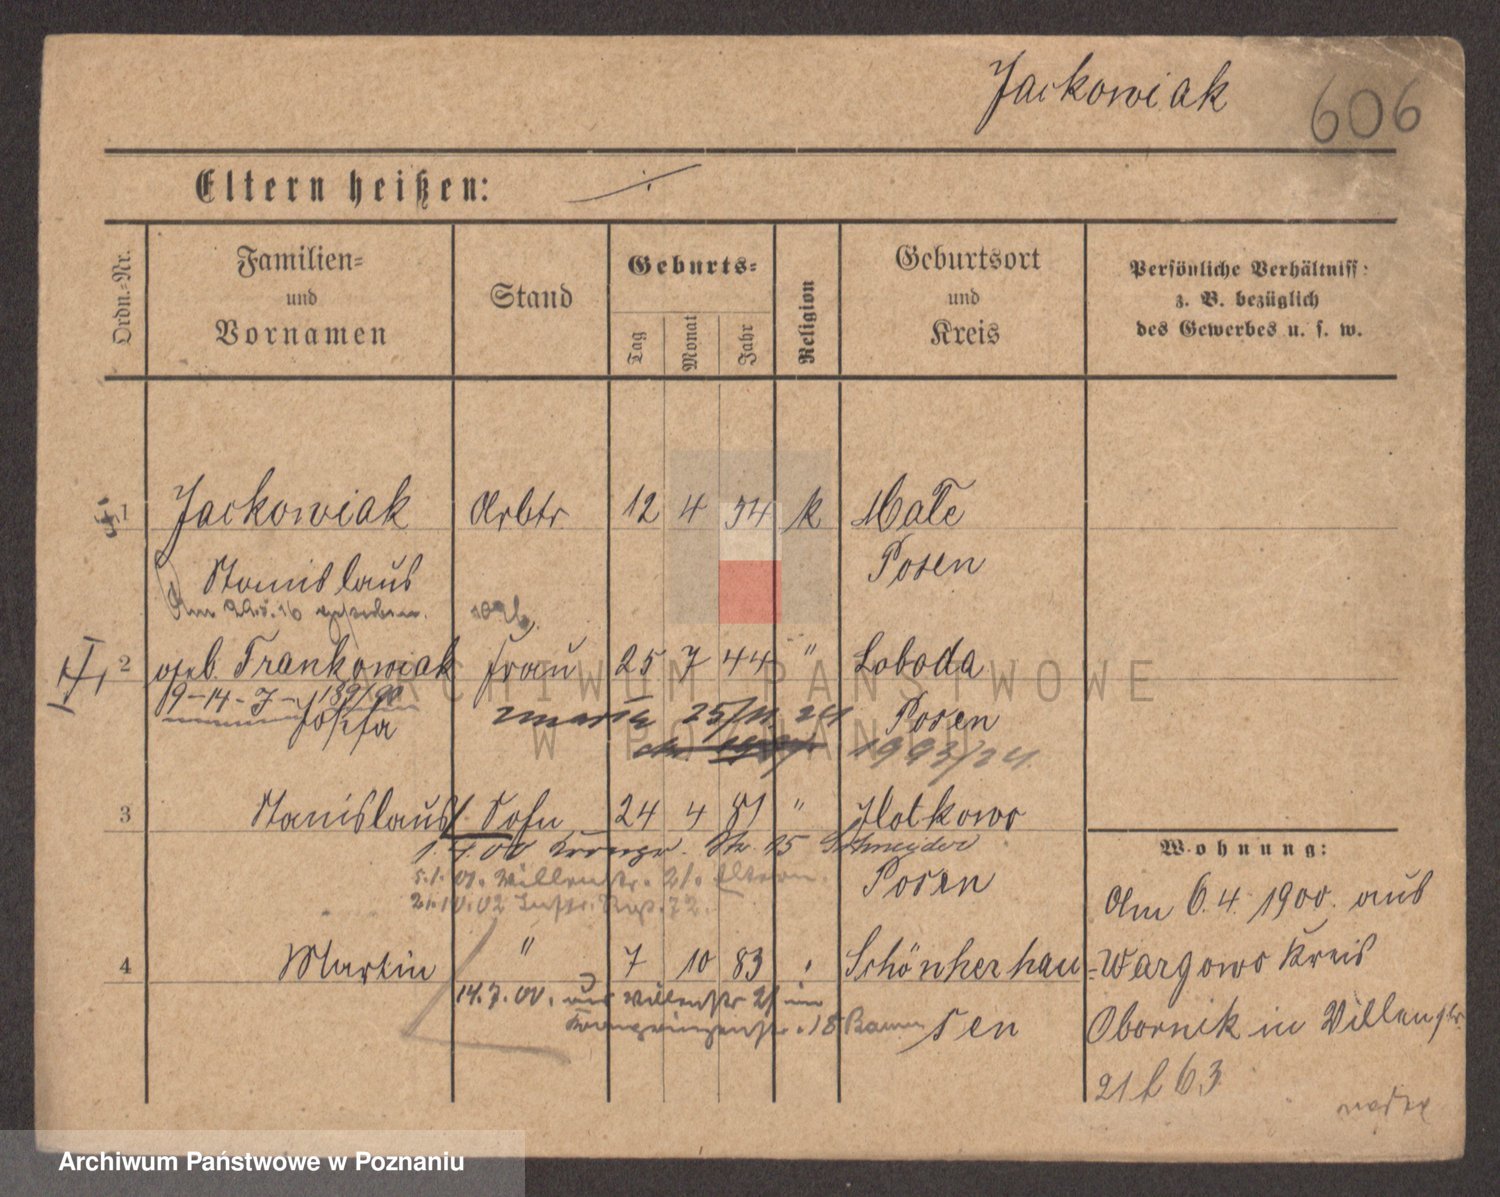 Jackowiak 606
Eltern heißen: ./.
Ordn.-Nr.
Familien-
und
Vornamen
Stand
Geburts-
Tag
Monat
Jahr
Religion
Geburtsort
und
Kreis
Persönliche Verhältniss:
z. B. bezüglich
des Gewerbes u. s. w.
1 Jackowiak Arbtr 12 4 54 k
Stanislaus Posen
Am
2 geb. Frankowiak Frau 25 7 44 " Loboda
19-14-7-1891/90
Josefa Posen
zmarła 25/11. 24
1993/24
3 Stanislaus Sohn 24 4 81 "
1.7.00 Str. 15 Schneider
Posen
5.1.01. Willenstr. 21. Eltern.
21.10.02 72.
4 Martin " 7 10 83 " Schönherhau-
14.7.00. aus Willenstr 21 im
Kronprinzenstr. 18
sen
Wohnung:
Am 6.4.1900. aus
Wargowo Kreis
Obornik in Willenstr
21 b 63
ARCHIWUM PAŃSTWOWE
W POZNANIU
Archiwum Państwowe w Poznaniu